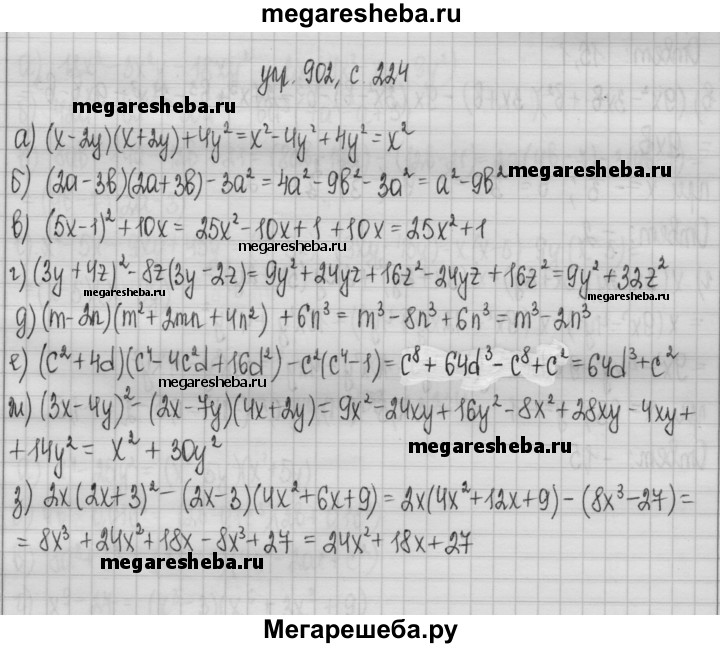 megaresheba.ru
упр. 902, с 224
megaresheba.ru
а) (x-2y)(x+2y)+4y²=x²-4y²+4y²=x²
б) (2a-3в)(2a+3в)-3a²=4a²-9в²-3a²=a²-9в²
megaresheba.ru
в) (5x-1)²+10x=25x²-10x+1+10x=25x²+1
megaresheba.ru
г) (3y+4z)²-8z(3y-2z)=9y²+24yz+16z²-24yz+16z²=9y²+32z²
megaresheba.ru
megaresheba.ru
д) (m-2n)(m²+2mn+4n²)+6n³=m³-8n³+6n³=m³-2n³
е) (c²+4d)(c⁴-4c²d+16d²)-c²(c⁴-1)=c⁸+64d³-c⁸+c²=64d³+c²
megaresheba.ru
ж) (3x-4y)²-(2x-7y)(4x+2y)=9x²-24xy+16y²-8x²+28xy-4xy+
+14y²=x²+30y²
megaresheba.ru
з) 2x(2x+3)²-(2x-3)(4x²+6x+9)=2x(4x²+12x+9)-(8x³-27)=
=8x³+24x²+18x-8x³+27=24x²+18x+27
megaresheba.ru
Мегарешеба.ру